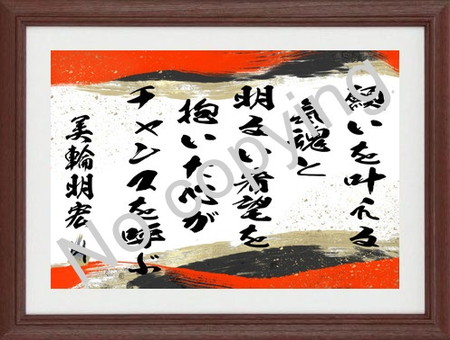 願いを叶える
気魂と
明るい希望を
抱いた心が
チャンスを呼ぶ
美輪明宏
No copying